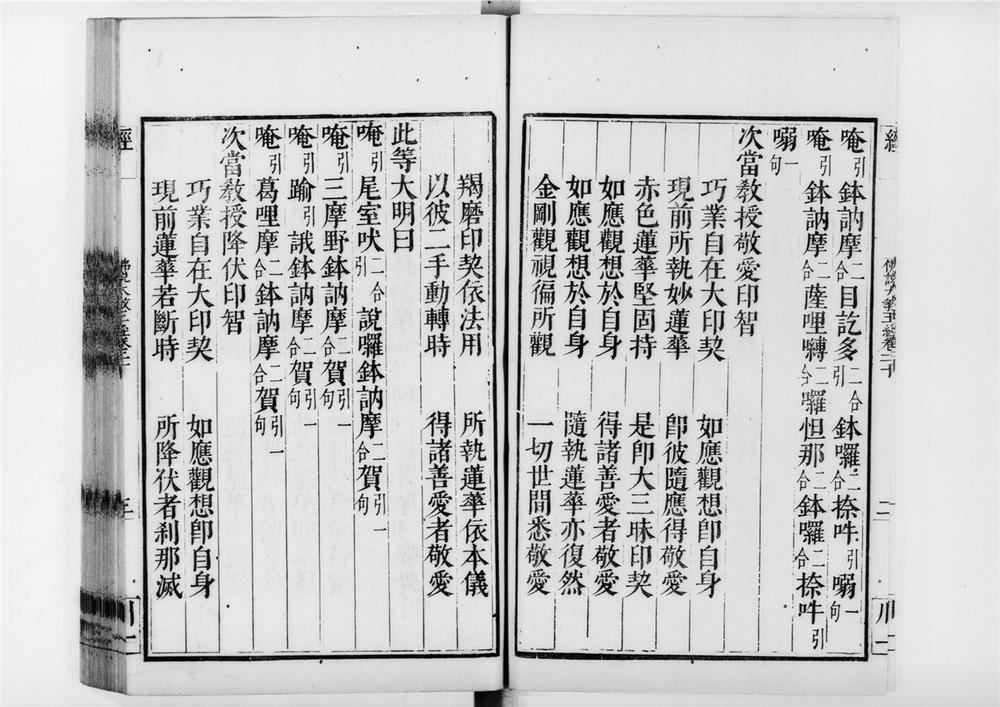 唵引鉢訥摩二合目訖多二合引鉢囉二合捺吽引嗍一句
唵引鉢訥摩二合薩哩嚩二合囉怛那二合鉢囉二合捺吽引
嗍一句
次當教授敬愛印智
巧業自在大印契 如應觀想卽自身
現前所執妙蓮華 卽彼隨應得敬愛
赤色蓮華堅固持 是卽大三昧印契
如應觀想於自身 得諸善愛者敬愛
如應觀想於自身 隨執蓮華亦復然
金剛觀視徧所觀 一切世間悉敬愛
羯磨印契依法用 所執蓮華依本儀
以彼二手動轉時 得諸善愛者敬愛
此等大明曰
唵引尾室吠二合引說囉鉢訥摩二合賀引一句
唵引三摩野鉢訥摩二合賀引一句
唵引踰引誐鉢訥摩二合賀引一句
唵引葛哩摩二合鉢訥摩二合賀引一句
次當教授降伏印智
巧業自在大印契 如應觀想卽自身
現前蓮華若斷時 所降伏者刹那滅